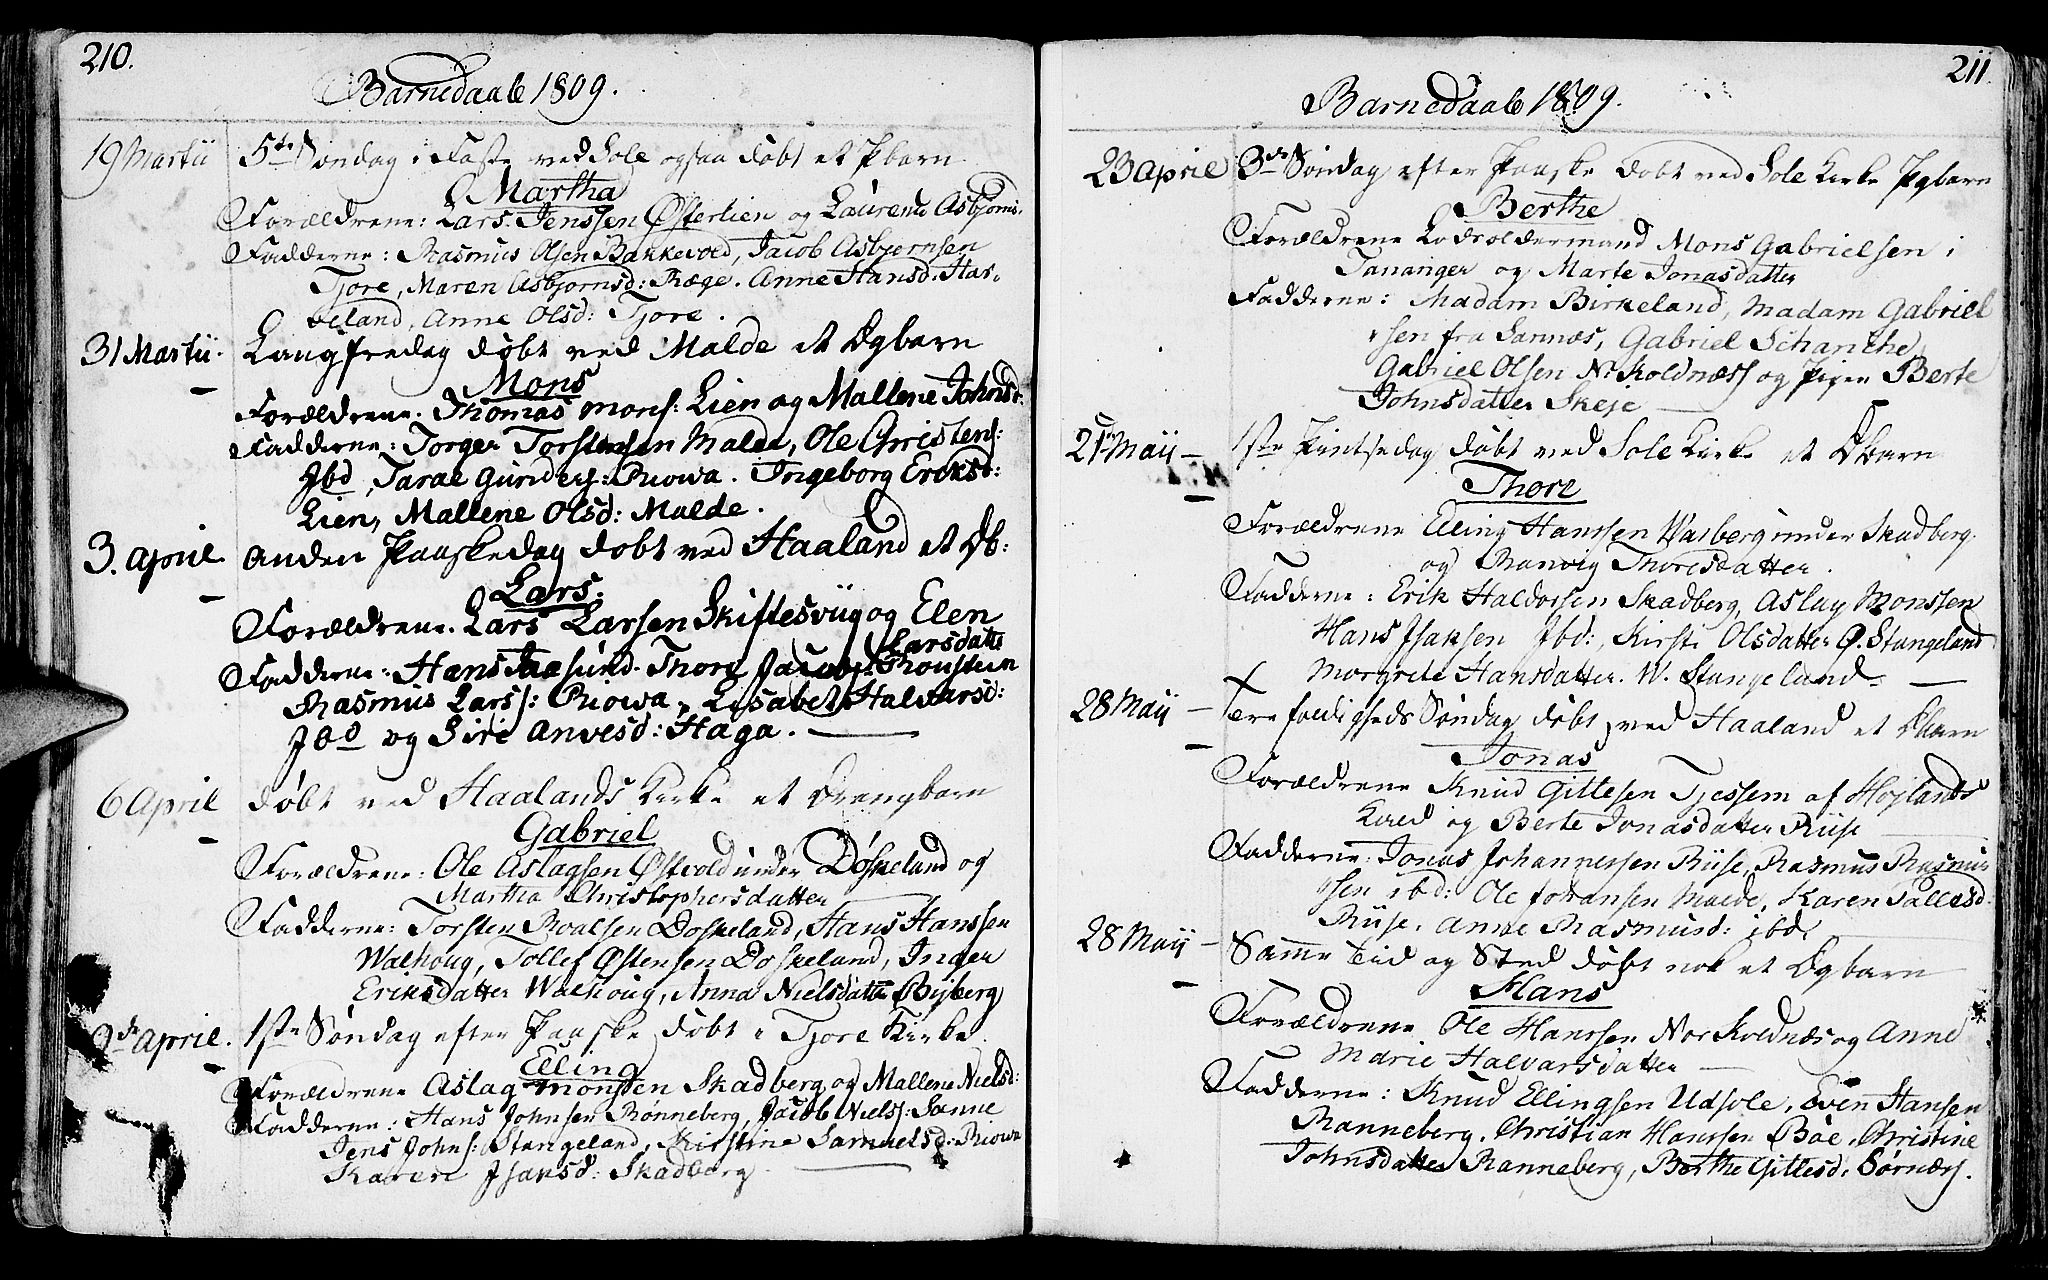 210.
Barnedaab 1809.
19 Martii 5te Søndag i Faste ved Sole ogsaa døbt et Pbarn
Martha
Forældrene: Lars Jenssen Østerlien og Laurents Asbjørns.
Fadderne: Rasmus Olsen Bakkevold, Jacob Asbjørnsen
Tjore, Maren Asbjornsd: Ræge. Anne Hansd: Has-
veland, Anne Olsd: Tjore.
31 Martii. Langfredag døbt ved Malde et Dgbarn
Mons
Forældrene. Thomas Mons: Lien og Mallene Johnsd:
Fadderne: Torger Torstensen Malde, Ole Christens:
Jbd, Taral Gunders: Riowa. Ingeborg Eriksd:
Lien, Mallene Olsd: Malde.
3. April Anden Paaskedag døbt ved Haaland et Db:
Lars.
Forældrene. Lars Larsen Skiftesviig og Elen
Larsdatter
Fadderne: Hans Thore Jacobs:
Rasmus Larss: Riowa, Lisabet Halvarsd:
Jbd og Siri Anvesd: Haga.
6 April døbt ved Haalands Kirke et Drengbarn
Gabriel
Forældrene: Ole Aslagsen Østvold under Døskeland og
Martha Christophersdatter
Fadderne: Torsten Roalsen Doskeland, Hans Hanssen
Walhoug, Tollef Østensen Doskeland, Inger
Eriksdatter Walhoug, Anna Nielsdatter Byberg
9de April. 1ste Søndag efter Paaske døbt i Tjore Kirke
Elling
Forældrene Aslag Monssen Skadberg og Mallene Nielsd:
Fadderne: Hans Johnsen Rønneberg, Jacob Niels: Sanne
Jens Johns: Stangeland, Kirstine Samuelsd: Riowa
Karen Jsaksd: Skadberg
211.
Barnedaab 1809.
23 April 3de Søndag efter Paaske døbt ved Sole Kirke Pgbarn
Berthe
Forældrene Lodsoldermand Mons Gabrielsen i
Tananger og Marte Jonasdatter
Fadderne: Madam Birkeland, Madam Gabriel
sen fra Sannæs, Gabriel Schanche,
Gabriel Olsen N. Koldnæss og Pigen Berte
Johnsdatter Skeje
21 Maij 1ste Pintsedag døbt ved Sole Kirke et Dbarn
Thore
Forældrene Elling Hanssen Warberg under Skadberg.
og Ranvig Thoresdatter.
Fadderne: Erik Haldorsen Skadberg, Aslag Monssen
Hans Jsaksen Jbd:, Kirsti Olsdatter Ø. Stangeland
Morgrete Hansdatter. W. Stangeland.
28 Maij Trefoldigheds Søndag døbt ved Haaland et Dbarn
Jonas
Forældrene Knud Gittesen Tjessem af Højlands
Kald og Berte Jonasdatter Riise
Fadderne: Jonas Johannessen Riise, Rasmus Rasmus
sen ibd: Ole Johansen Malde, Karen Pallesd:
Riise, Anne Rasmusd: ibd:
28 Maij Samme Tid og Sted døbt nok et Dgbarn
Hans
Forældrene Ole Hanssen Nor Koldnæs og Anne
Marie Halvarsdatter
Fadderne: Knud Ellingsen Udsole, Even Hansen
Ranneberg, Christian Hanssen Bøe, Christine
Johnsdatter Ranneberg, Berthe Gittesd: Sørnæs.